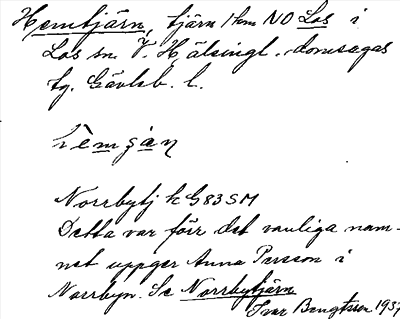 Hemtjärn, tjärn 1 km NO Los i
Los sn. V. Hälsingl. domsagas
tg. Gävleb. l.
Norrbytj k G83SM
Detta var förr det vanliga nam-
net uppger Anna Persson i
Norrbyn. Se Norrbytjärn
Ivar Bengtsson 1937